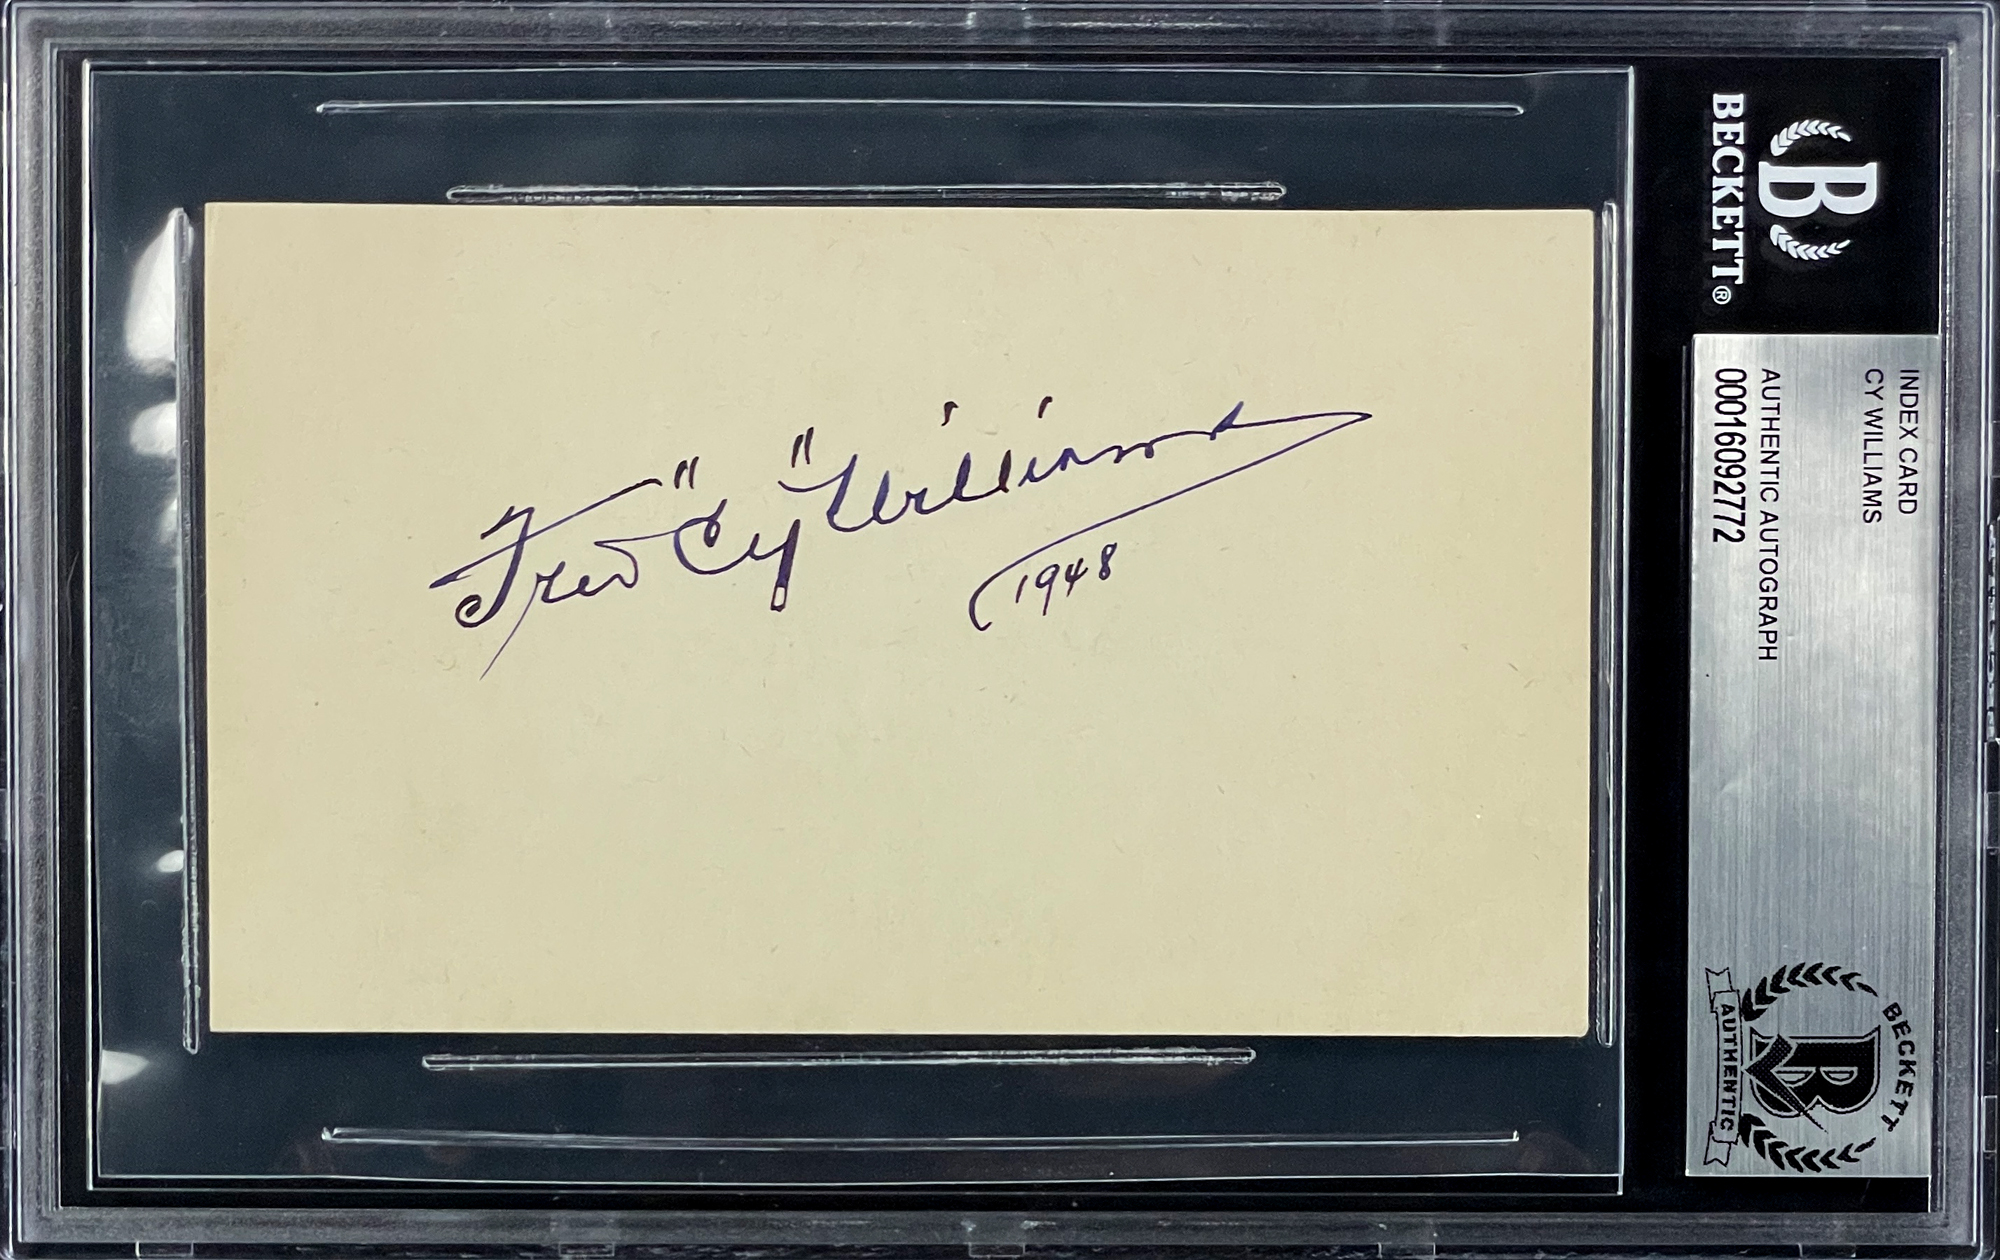 Fred "Cy" Williams
1948
BECKETT®
B
INDEX CARD
CY WILLIAMS
AUTHENTIC AUTOGRAPH
00016092772
BECKETT
B
AUTHENTIC